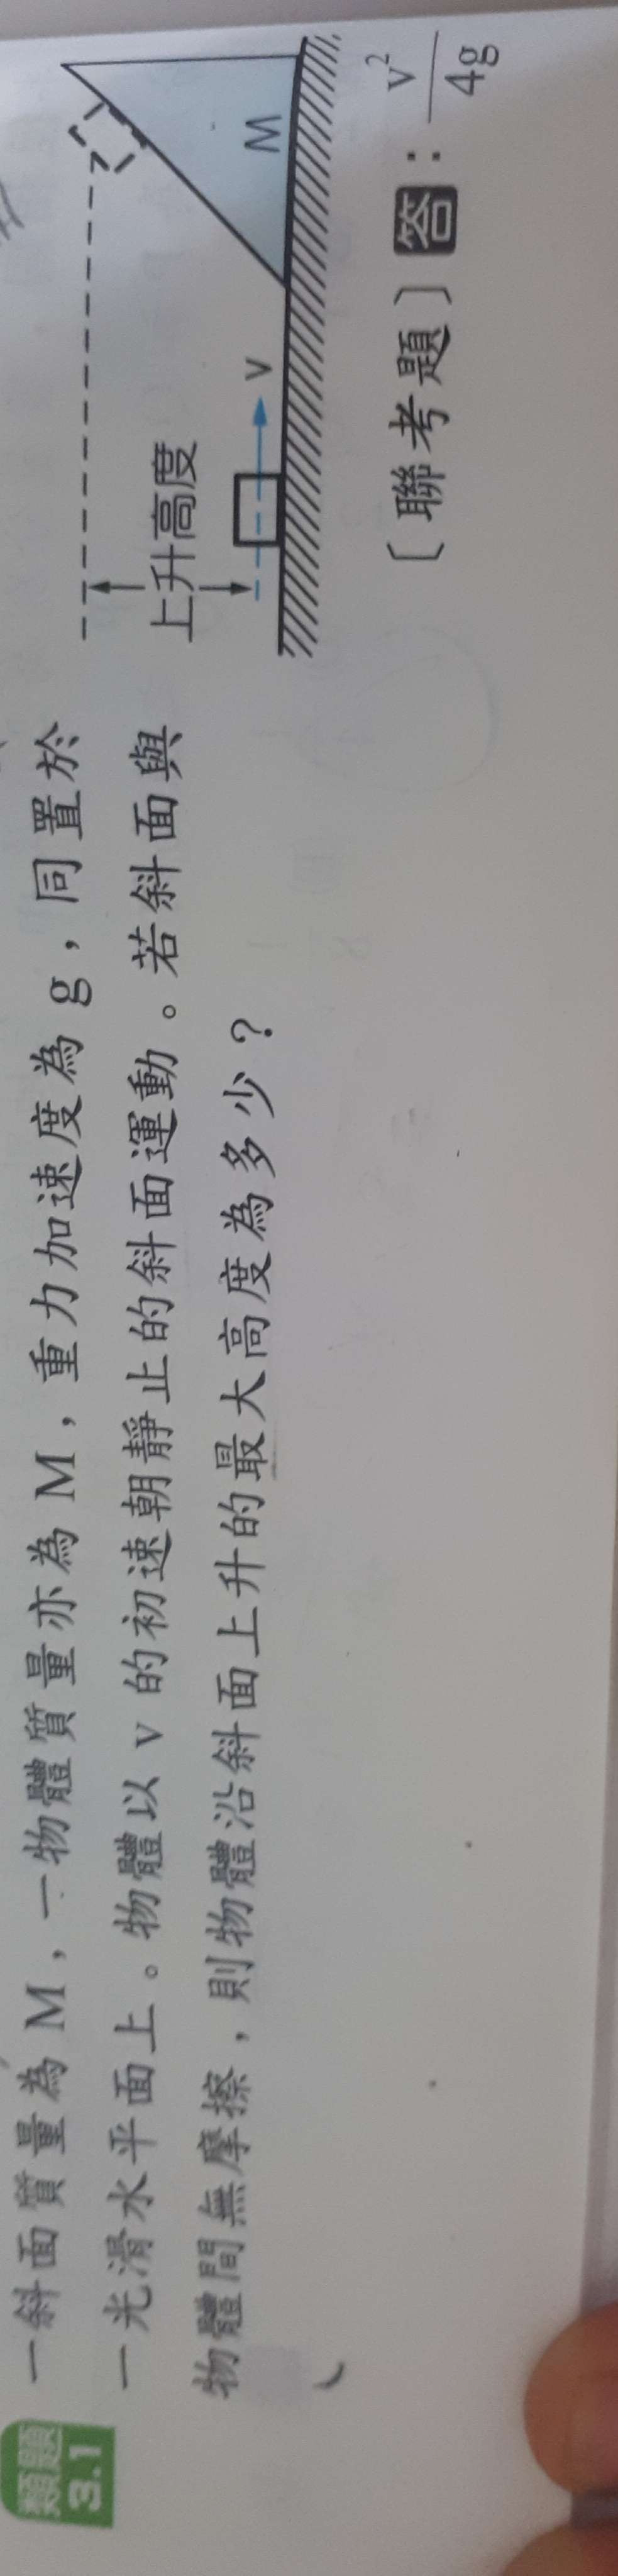 類題
3.1
一斜面質量為 M，一物體質量亦為 M，重力加速度為 g，同置於
一光滑水平面上。物體以 v 的初速朝靜止的斜面運動。若斜面與
物體間無摩擦，則物體沿斜面上升的最大高度為多少？
上升高度
v
M
〔聯考題〕答：v²/4g